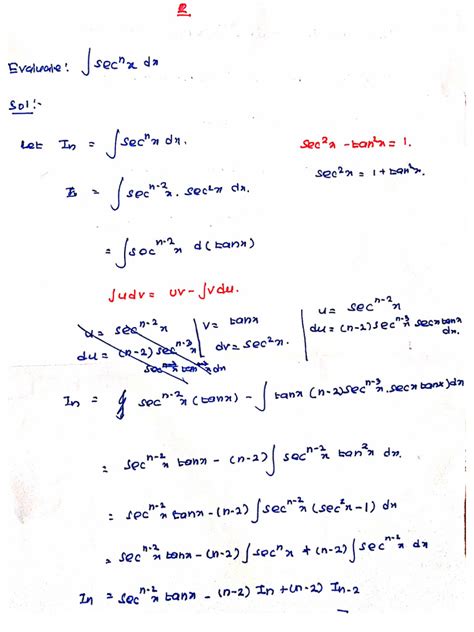 2
Evaluate: ∫secⁿx dx
Sol:-
Let Iₙ = ∫secⁿx dx.
sec²x - tan²x = 1.
sec²x = 1 + tan²x.
= ∫secⁿ⁻²x. sec²x dx.
= ∫secⁿ⁻²x d(tanx)
∫udv = uv - ∫vdu.
u = secⁿ⁻²x
du = (n-2) secⁿ⁻³x
secx tanx dx
v = tanx
dv = sec²x.
u = secⁿ⁻²x
du = (n-2) secⁿ⁻³x secx tanx dx.
Iₙ = secⁿ⁻²x (tanx) - ∫tanx (n-2) secⁿ⁻³x. secx tanx) dx
= secⁿ⁻²x tanx - (n-2) ∫secⁿ⁻²x tan²x dx.
= secⁿ⁻²x tanx - (n-2) ∫secⁿ⁻²x (sec²x - 1) dx
= secⁿ⁻²x tanx - (n-2) ∫secⁿx + (n-2) ∫secⁿ⁻²x dx
Iₙ = secⁿ⁻²x tanx - (n-2) Iₙ + (n-2) Iₙ₋₂